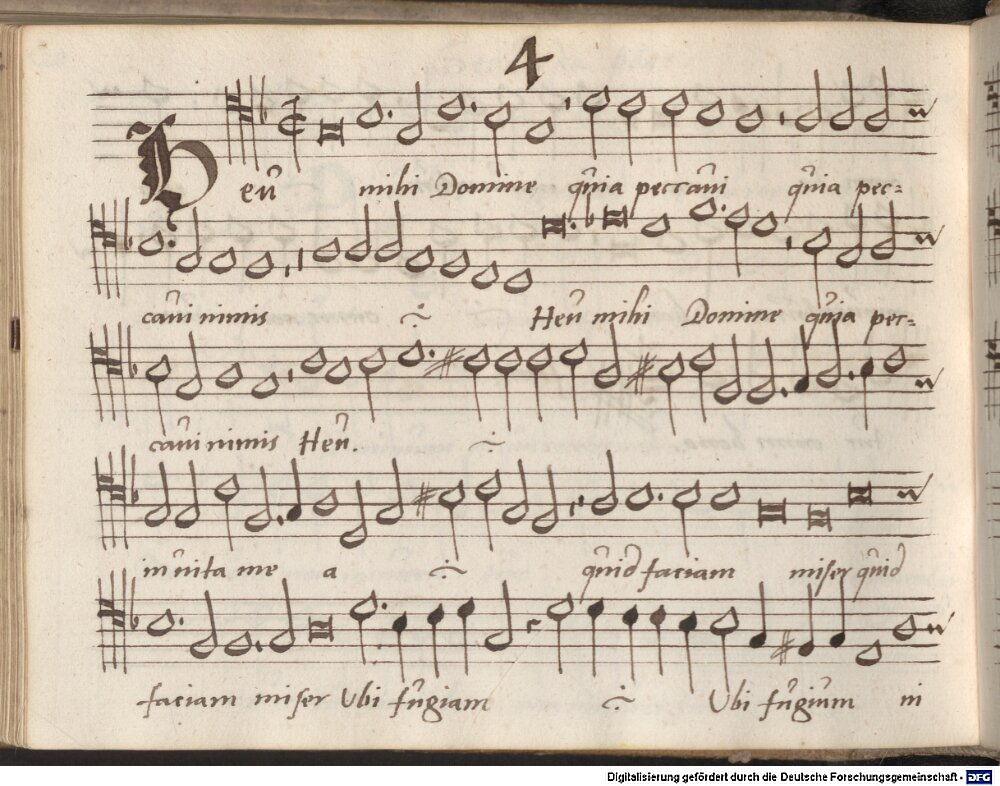 4
Heu mihi Domine quia peccaui quia pec=
caui nimis Heu mihi Domine quia pec=
caui nimis Heu.
in uita me a quid faciam miser quid
faciam miser Ubi fugiam Ubi fugium ni
Digitalisierung gefördert durch die Deutsche Forschungsgemeinschaft - DFG